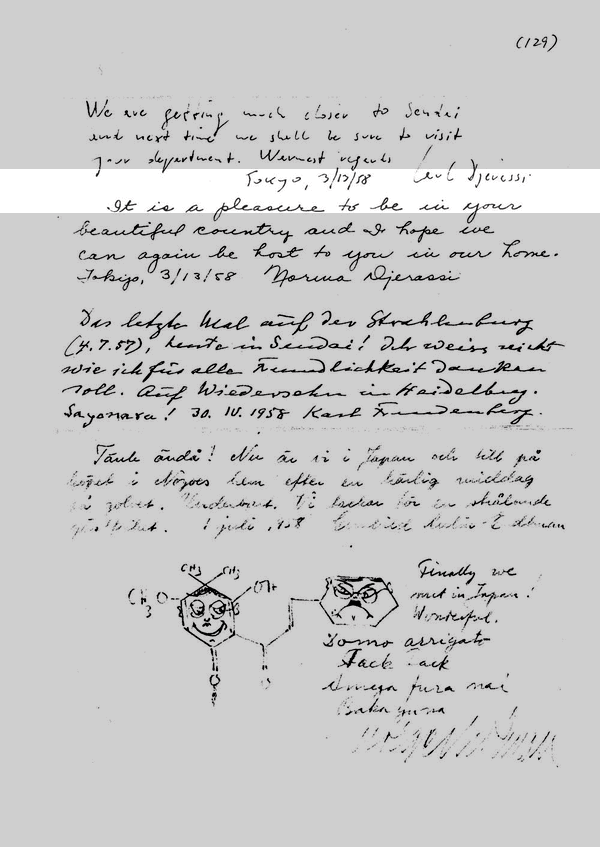 (129)
We are getting much closer to Sendai
and next time we shall be sure to visit
your department. Warmest regards
Tokyo, 3/13/58 Carl Djerassi
It is a pleasure to be in your
beautiful country and I hope we
can again be host to you in our home.
Tokyo, 3/13/58 Norma Djerassi
Das letzte Mal auf der Strahlenburg
(4.7.57), heute in Sendai! Ich weiss nicht
wie ich für alle Freundlichkeit danken
soll. Auf Wiedersehn in Heidelberg.
Sayonara! 30. IV. 1958 Karl Freudenberg.
Tänk ändå! Nu är vi i Japan och sitt på
i Nozoes hem efter en härlig middag
på golvet. Underbart. Vi tackar för en strålande
1 juli 1958
CH3 CH3
CH3O OH
O O
Finally we
met in Japan!
Wonderful.
Domo arrigato
Tack Tack
Omega fura nai